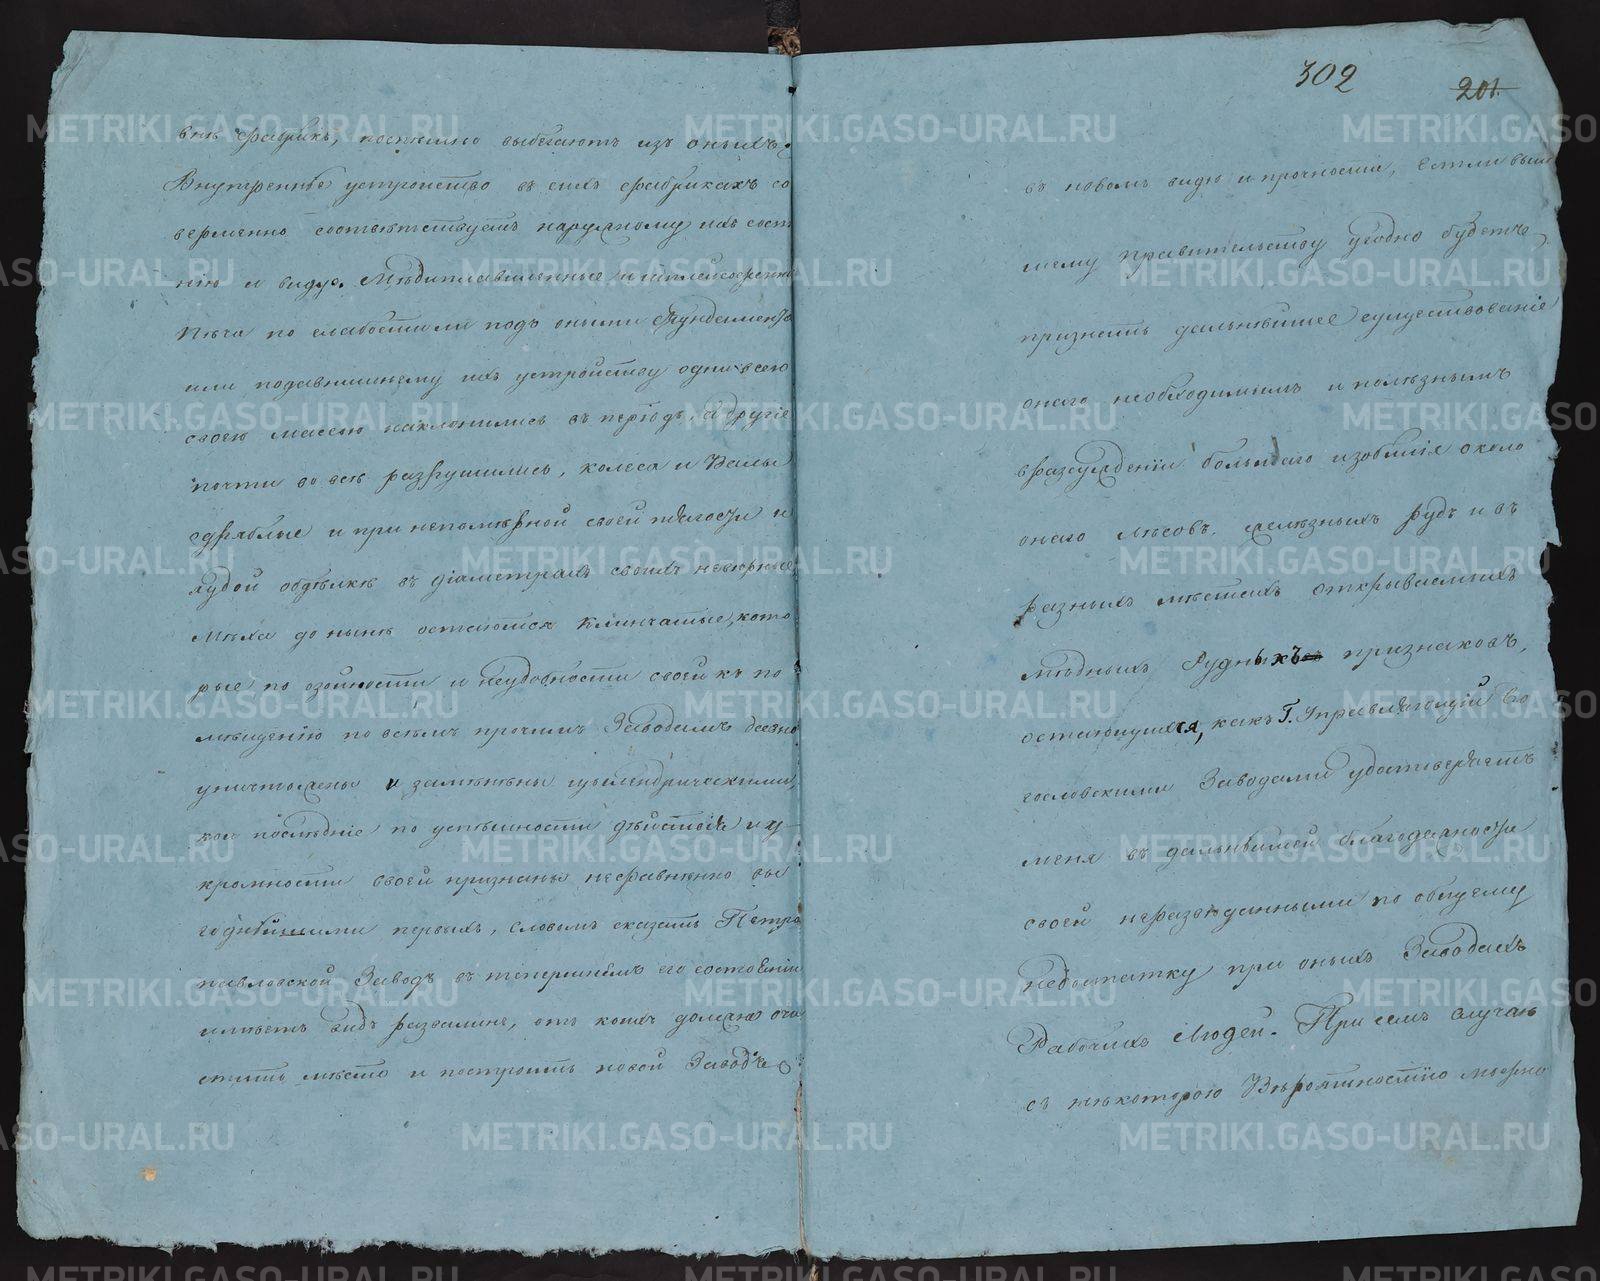 внѣ фабрикъ, поспешно выбегаютъ изъ оныхъ.
Внутреннѣе устройство въ сихъ фабрикахъ со
вершенно соотвѣтствуетъ наружному ихъ состоя
нію и виду. Мѣдиплавиленные и шплейзофенные
Печи по слабости подъ оными Фундамента
или подавлшнему ихъ устройству одни всею
своею массою наклонились въ періодъ, а другіе
почти во все разрушились, колеса и Валы
одряблые и при непомѣрной своей тягости и
худой обдѣлкѣ въ діаметрахъ своихъ неверные
Мѣха до нынѣ остаются Клинчатые, кото
рые по и неудобности своей къ по
мѣщенію по всѣмъ прочимъ Заводамъ давно
уничтожены и замѣнены цылендрическими,
кои послѣдніе по успѣшности дѣйствія и у
кромности своей признаны несравненно вы
годнѣйшими первыхъ, словомъ сказать Петро
павловской Заводъ въ теперешнемъ его состояніи
имѣетъ видъ развалинъ, отъ коихъ должно очи
стить мѣсто и построить новой Заводъ
302
201.
въ новомъ виде и прочности, естли выш
шему правительству угодно будетъ
признать дальнѣйшее существованіе
онаго необходимымъ и полезнымъ
вразсужденіи большаго изобилія около
онаго Лѣсовъ, железныхъ рудъ и въ
разныхъ мѣстахъ открываемыхъ
мѣдныхъ Рудныхъ признаковъ,
остающихся, какъ Г. Управляющій Бо
гословскими Заводами удостоверяетъ
меня въ дальнѣйшей благонадежности
своей неразведанными по общему
недостатку при оныхъ Заводахъ
Рабочихъ Людей. При семъ случаѣ
съ некоторою Вѣроятностію можно